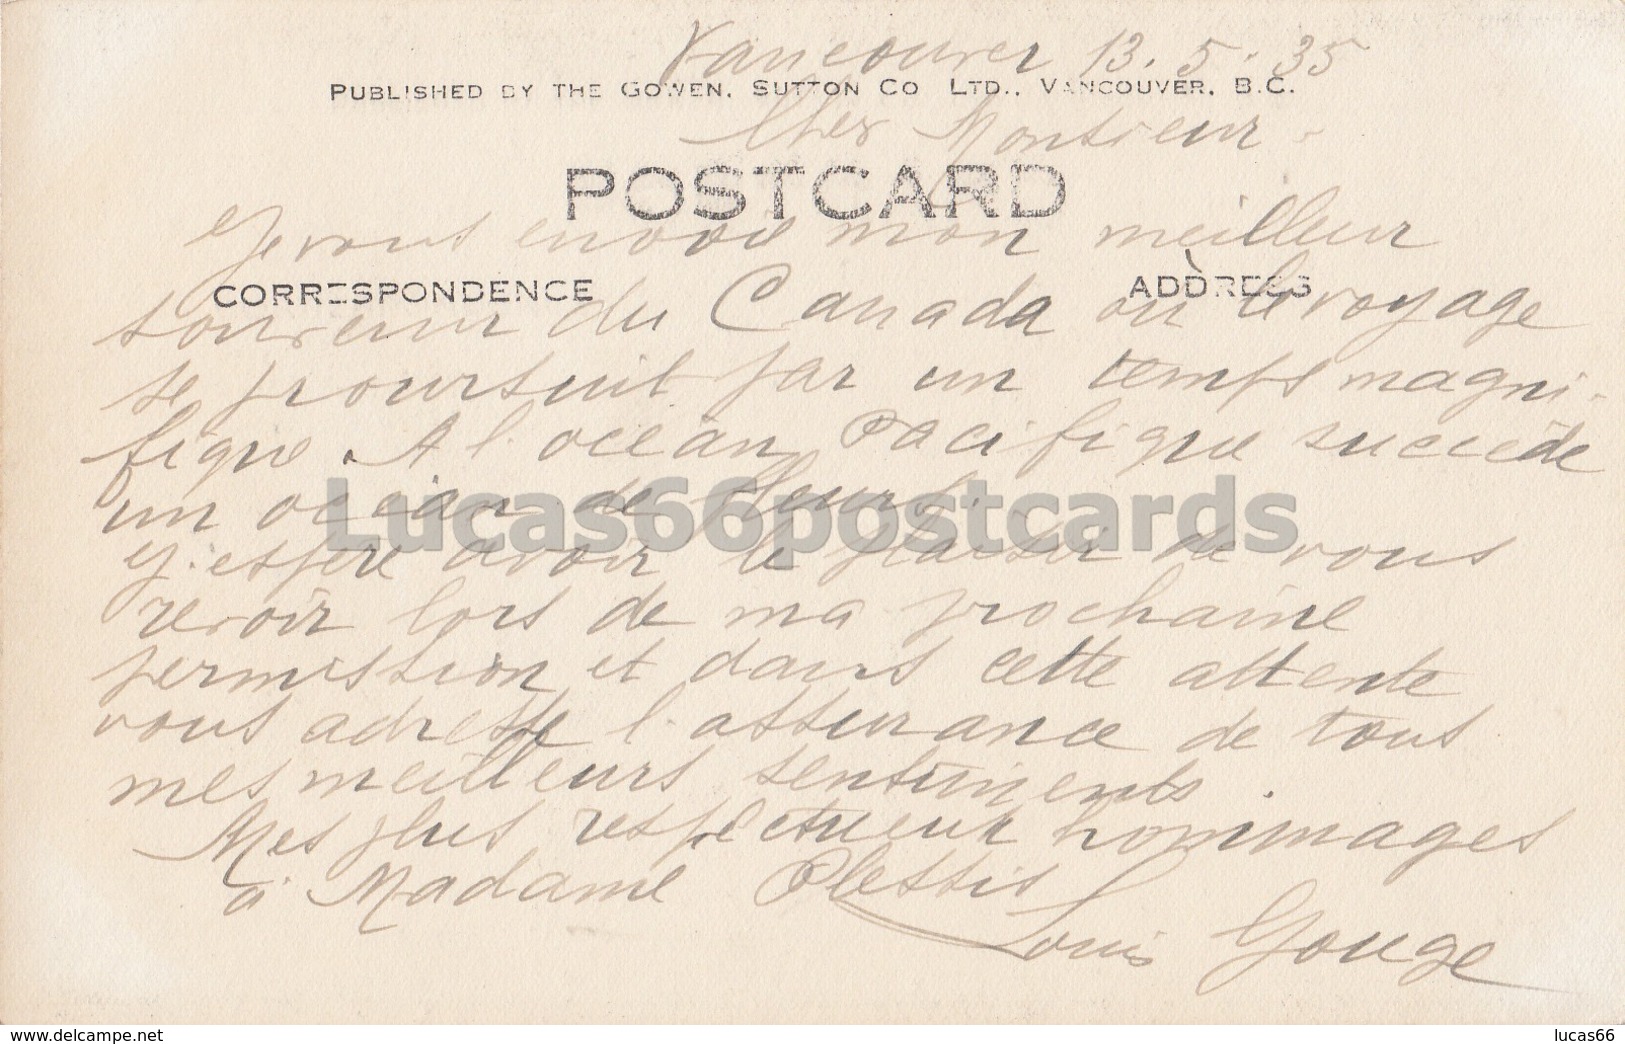 Vancouver 13.5.35
PUBLISHED BY THE GOWEN, SUTTON CO LTD., VANCOUVER, B.C.
Cher Monsieur
POSTCARD
Je vous envoie mon meilleur
CORRESPONDENCE ADDRESS
souvenir du Canada où le voyage
se poursuit par un temps magni-
fique. A l'océan Pacifique succède
un océan de fleurs.
Lucas66postcards
J'espère avoir le plaisir de vous
revoir lors de ma prochaine
permission et dans cette attente
vous adresse l'assurance de tous
mes meilleurs sentiments.
Mes plus respectueux hommages
à Madame Plessis
Louis Gouge
www.delcampe.net lucas66